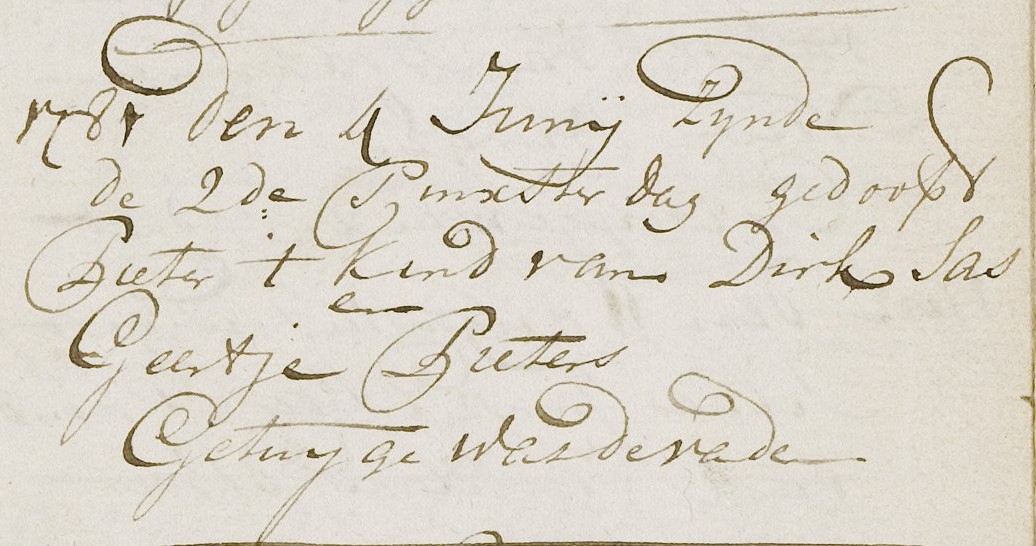 1781 den 4 Junij zynde
de 2de Pinxster dag gedoopt
Pieter t kind van Dirk Sas
en
Geertje Pieters
Getuyge was de vade